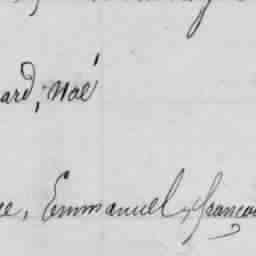 ard, Noé
ee, Emmanuel, françoi